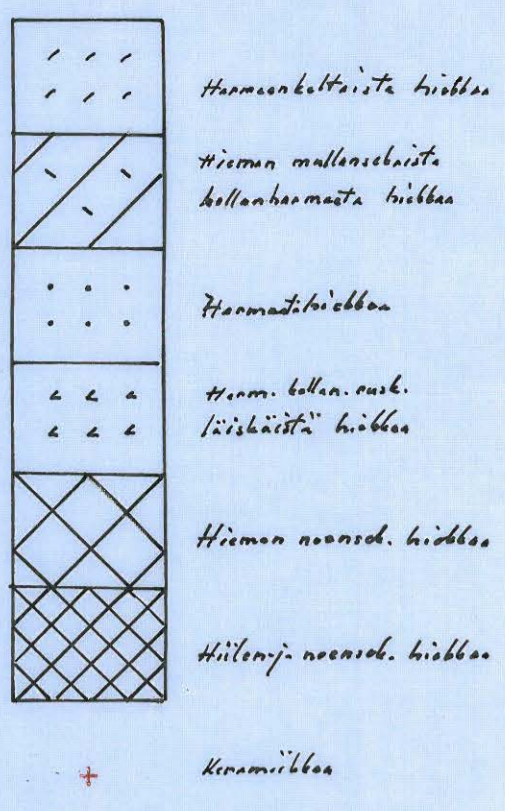 Harmaankeltaista hiekkaa
Hieman mullansekaista
kellanharmaata hiekkaa
Harmaata hiekkaa
Harm. kellan. rusk.
läiskäistä hiekkaa
Hieman noensek. hiekkaa
Hiilen-j. noensek. hiekkaa
Keramiikkaa